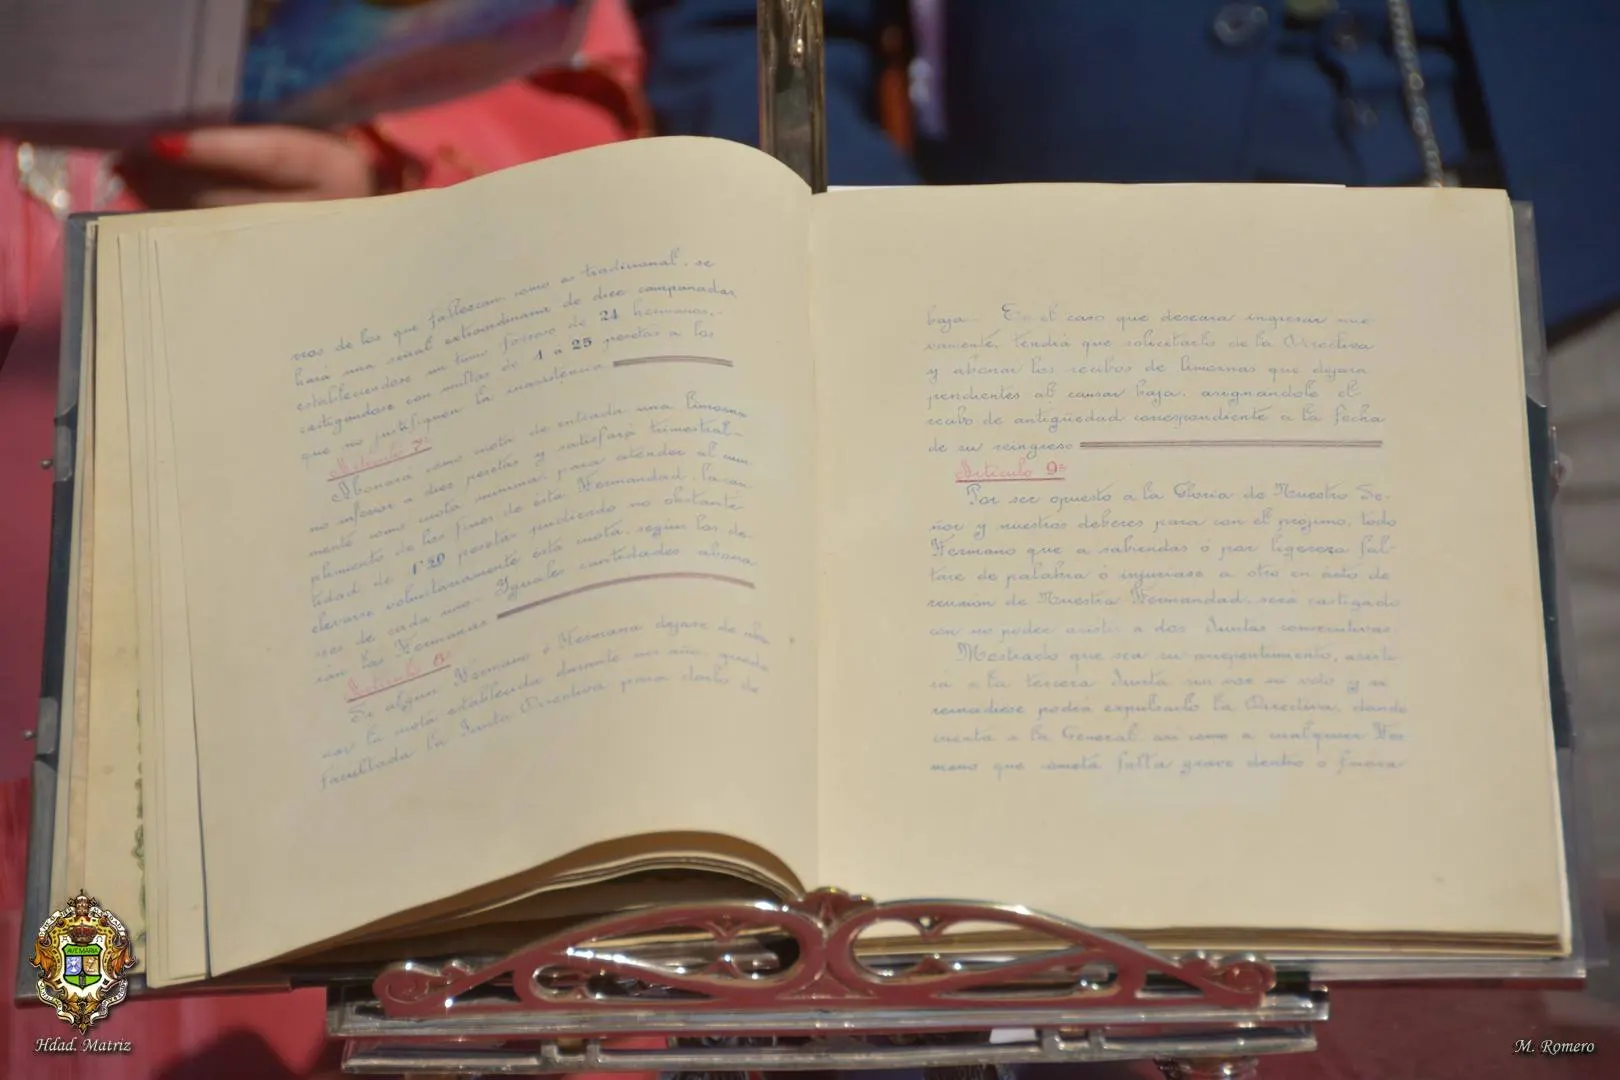 nos de los que fallezcan, como es tradicional, se
hará una señal extraordinaria de diez campanadas,
estableciendose un turno forzoso de 24 hermanos,
castigandose con multas de 1 a 25 pesetas a los
que no justifiquen la inasistencia
Artículo 7º
Abonará como cuota de entrada una limosna
no inferior a diez pesetas y satisfará trimestral-
mente como cuota mínima, para atender al cum-
plimento de los fines de ésta Hermandad, la can-
tidad de 1'20 pesetas pudiendo no obstante
elevarse voluntariamente está cuota, según los de-
seos de cada uno. Iguales cantidades abona
rán las Hermanas
Artículo 8º
Si algún Hermano ó Hermana dejase de abo
nar la cuota establecida durante un año, queda
facultada la Junta Directiva para darlo de
baja. En el caso que deseara ingresar nue-
vamente, tendrá que solicitarlo de la Directiva
y abonar los recibos de limosnas que dejara
pendientes al causar baja, asignandole el
recibo de antigüedad correspondiente a la fecha
de su reingreso
Artículo 9º
Por ser opuesto a la Gloria de Nuestro Se-
ñor y nuestros deberes para con el projimo, todo
Hermano que a sabiendas ó por ligereza fal-
tare de palabra ó injuriase a otro en ácto de
reunión de Nuestra Hermandad, será castigado
con no poder asistir a dos Juntas consecutivas.
Mostrado que sea su arrepentimento, asisti-
rá a la tercera Junta sin voz ni voto y si
reincidiese podrá expulsarlo la Directiva, dando
cuenta a la General, asi como a cualquier Her
mano que cometa falta grave dentro o fuera
AVE MARIA
Hdad. Matriz
M. Romero